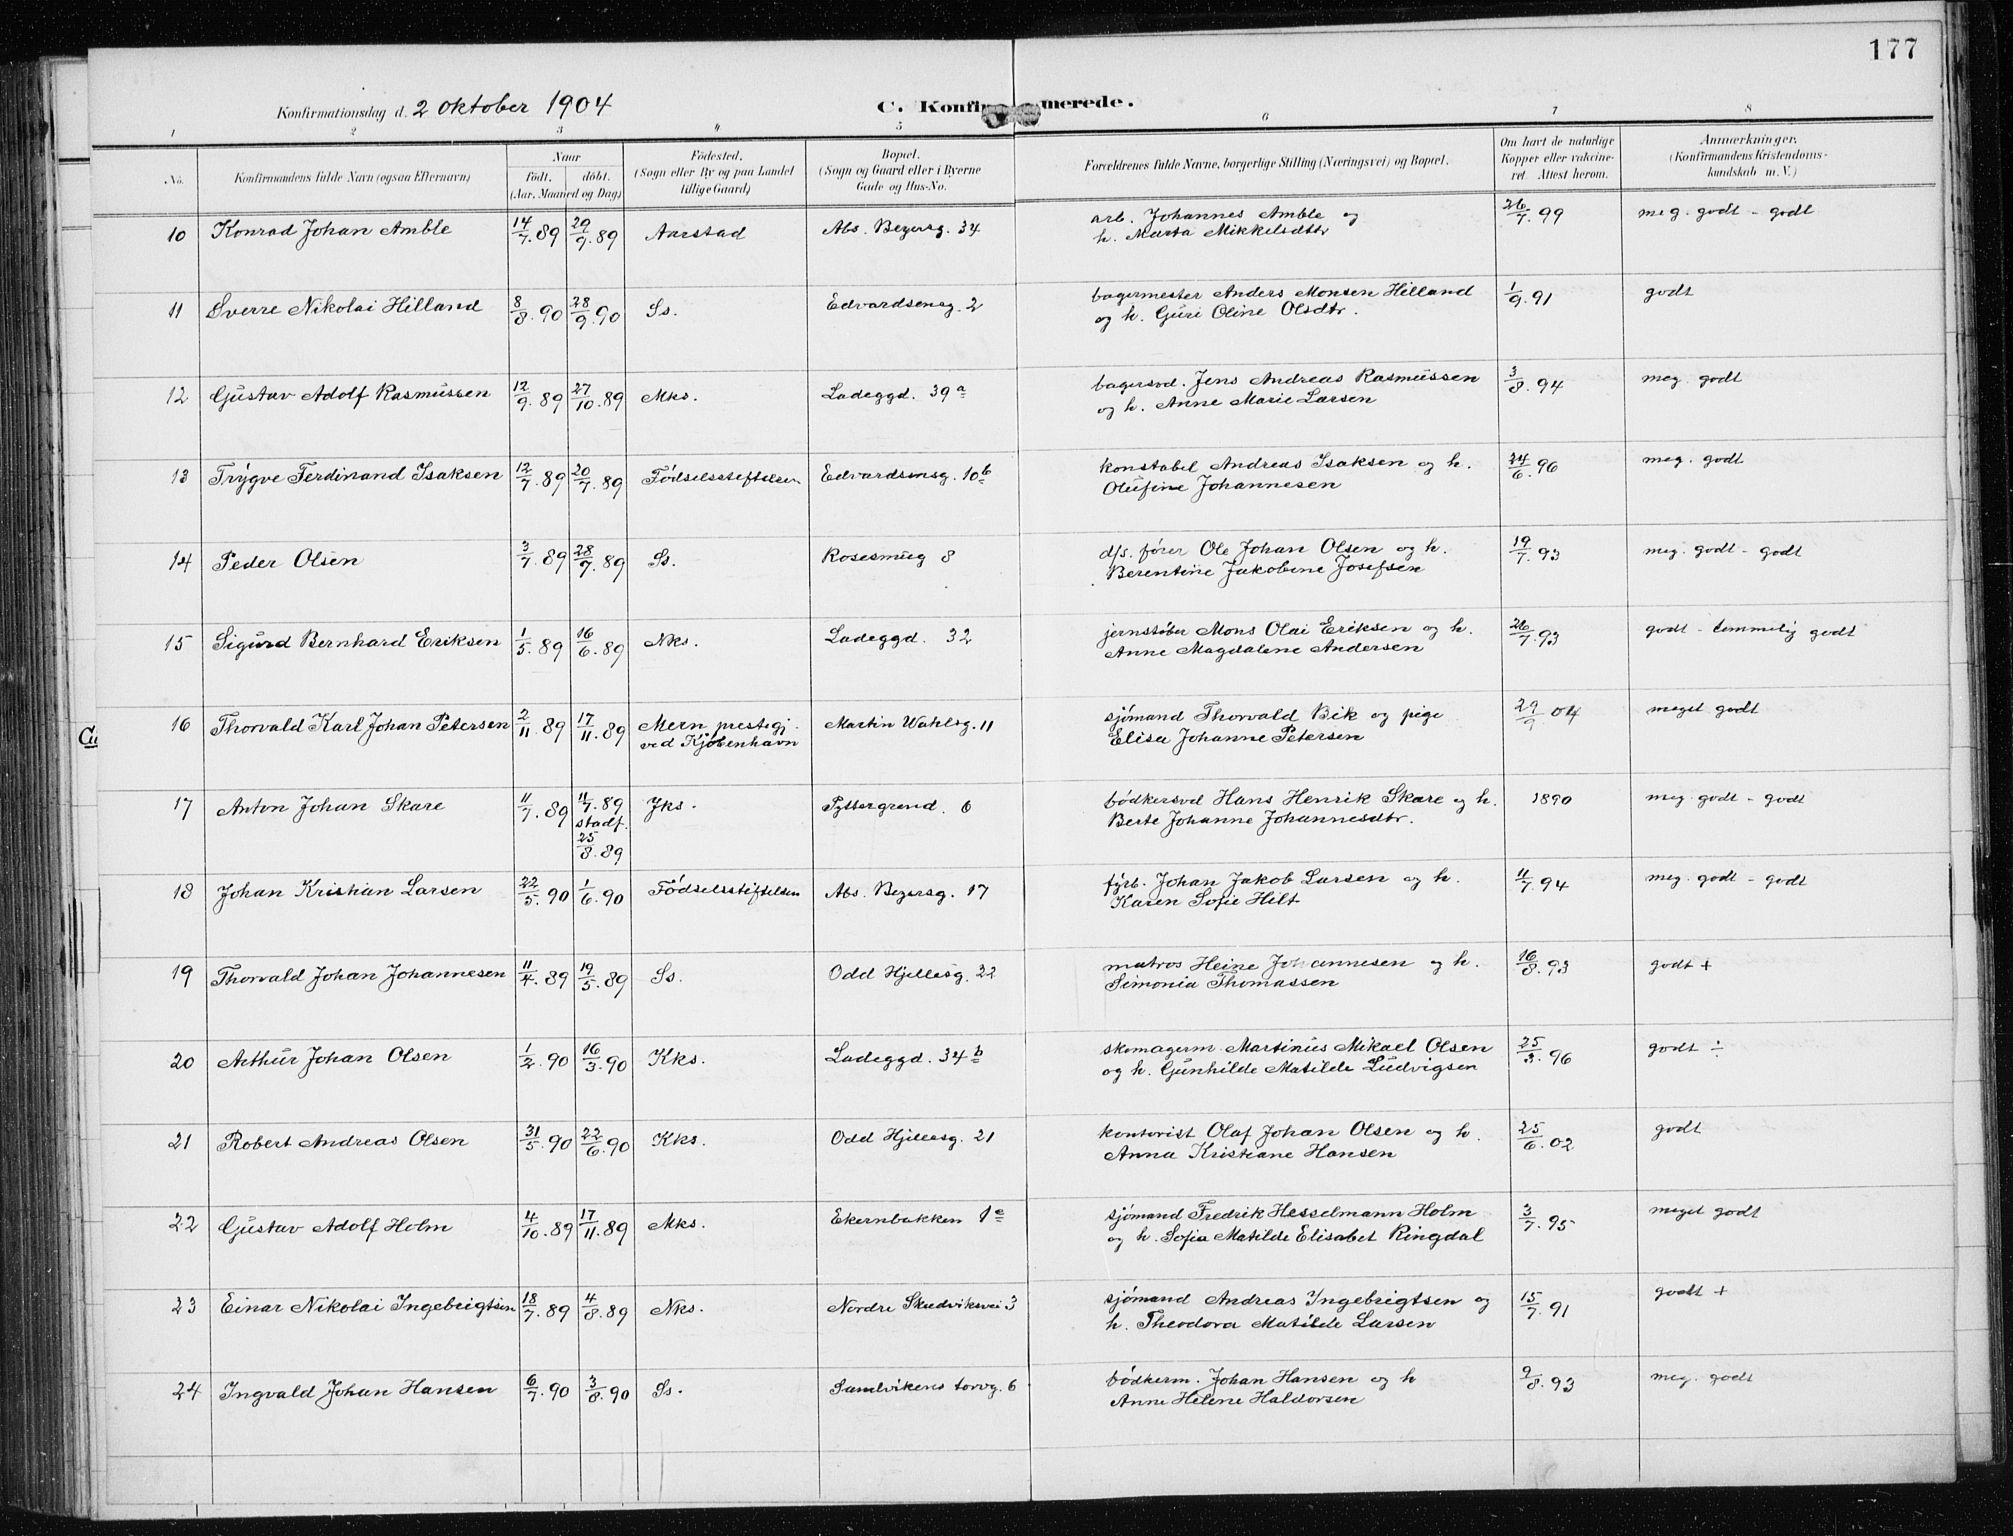 177
Konfirmationsdag d. 2 oktober 1904
C. Konfirmerede.
1 2 3 4 5 6 7 8
No. Konfirmandens fulde Navn (ogsaa Efternavn)
Naar
født. døbt.
(Aar, Maaned og Dag)
Fødested.
(Sogn eller By og paa Landet
tillige Gaard)
Bopæl.
(Sogn og Gaard eller i Byerne
Gade og Hus-No.
Forældrenes fulde Navne, borgerlige Stilling (Næringsvei) og Bopæl.
Om havt de naturlige
Kopper eller vakcine-
ret. Attest herom.
Anmærkninger.
(Konfirmandens Kristendoms-
kundskab m. V.)
10 Konrad Johan Amble 14/7. 89 29/9. 89 Aarstad Abs. Beyersg. 34 arb. Johannes Amble og 26/7. 99 meg. godt - godt
h. Marta Mikkelsdtr
11 Sverre Nikolai Hilland 8/8. 90 28/9. 90 Ss. Edvardseng. 2 bagermester Anders Monsen Hilland 1/9. 91 godt
og h. Guri Oline Olsdtr.
12 Gustav Adolf Rasmussen 12/9. 89 27/10. 89 Mks. Ladeggd. 39 a bagersvd. Jens Andreas Rasmussen 3/8. 94 meg. godt
og h. Anne Marie Larsen
13 Trygve Ferdinand Isaksen 12/7. 89 20/7. 89 Fødselsstiftelsen Edvardsensg. 10 b konstabel Andreas Isaksen og h. 24/6. 96 meg. godt
Olufine Johannesen
14 Peder Olsen 3/7. 89 28/7. 89 Ss. Rosesmug 8 d/s. fører Ole Johan Olsen og h. 19/7. 93 meg. godt - godt
Berentine Jakobine Josefsen
15 Sigurd Bernhard Eriksen 1/5. 89 16/6. 89 Nks. Ladeggd. 32 jernstøber Mons Olai Eriksen og h. 26/7. 93 godt - temmelig godt
Anne Magdalene Andersen
16 Thorvald Karl Johan Petersen 2/11. 89 17/11. 89 Mern prestegj. Martin Wahlsg. 11 sjømand Thorvald Bik og pige 29/9 04 meget godt
ved Kjøbenhavn Elisa Johanne Petersen
17 Anton Johan Skare 11/7. 89 11/7. 89 Jks. Pyttergrend. 6 bødkersvd Hans Henrik Skare og h. 1890 meg. godt - godt
stadf. Berte Johanne Johannesdtr.
25/8. 89
18 Johan Kristian Larsen 22/5. 90 1/6. 90 Fødselsstiftelsen Abs. Beyersg. 17 fyrb. Johan Jakob Larsen og h. 11/7. 94 meg. godt - godt
Karen Sofie Hilt
19 Thorvald Johan Johannesen 11/4. 89 19/5. 89 Ss. Odd Hjellesg. 22 matros Heine Johannesen og h. 16/8. 93 godt +
Simonia Thomassen
20 Arthur Johan Olsen 1/2. 90 16/3. 90 Kks. Ladeggd. 34 b skomagerm. Martinus Mikael Olsen 25/3. 96 godt ÷
og h. Gunhilde Matilde Ludvigsen
21 Robert Andreas Olsen 31/5. 90 22/6. 90 Kks. Odd Hjellesg. 21 kontorist Olaf Johan Olsen og h. 25/6. 02 godt
Anna Kristiane Hansen
22 Gustav Adolf Holm 4/10. 89 17/11. 89 Mks. Ekernbakken 1 sjømand Fredrik Hesselmann Holm 3/7. 95 meget godt
og h. Sofia Matilde Elisabet Ringdal
23 Einar Nikolai Ingebrigtsen 18/7. 89 4/8. 89 Nks. Nordre Skudviksvei 3 sjømand Andreas Ingebrigtsen og 15/7. 91 godt +
h. Theodora Matilde Larsen
24 Ingvald Johan Hansen 6/7. 90 3/8. 90 Ss. Sandvikens torvg. 6 bødkerm. Johan Hansen og h 2/8. 93 meg. godt
Anne Helene Haldorsen